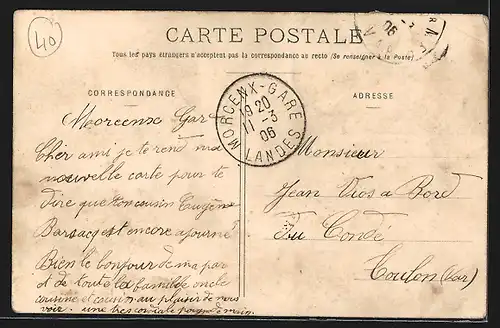 40
CARTE POSTALE
Tous les pays étrangers n'acceptent pas la correspondance au recto (Se renseigner à la Poste)
CORRESPONDANCE
ADRESSE
MORCENX-GARE
19 20
11 - 3
06
LANDES
06
Morcenx Gar
Cher ami je te rend ma
nouvelle carte pour te
dire que ton cousin Eugène
Barsacq est encore ajourné
Bien le bonjour de ma par
et de toute la famille oncle
cousine et cousin au plaisir de nous
voir. une très cordiale poigné de main.
Monsieur
Jean Dios a Bord
Du Condé
Toulon (Var)